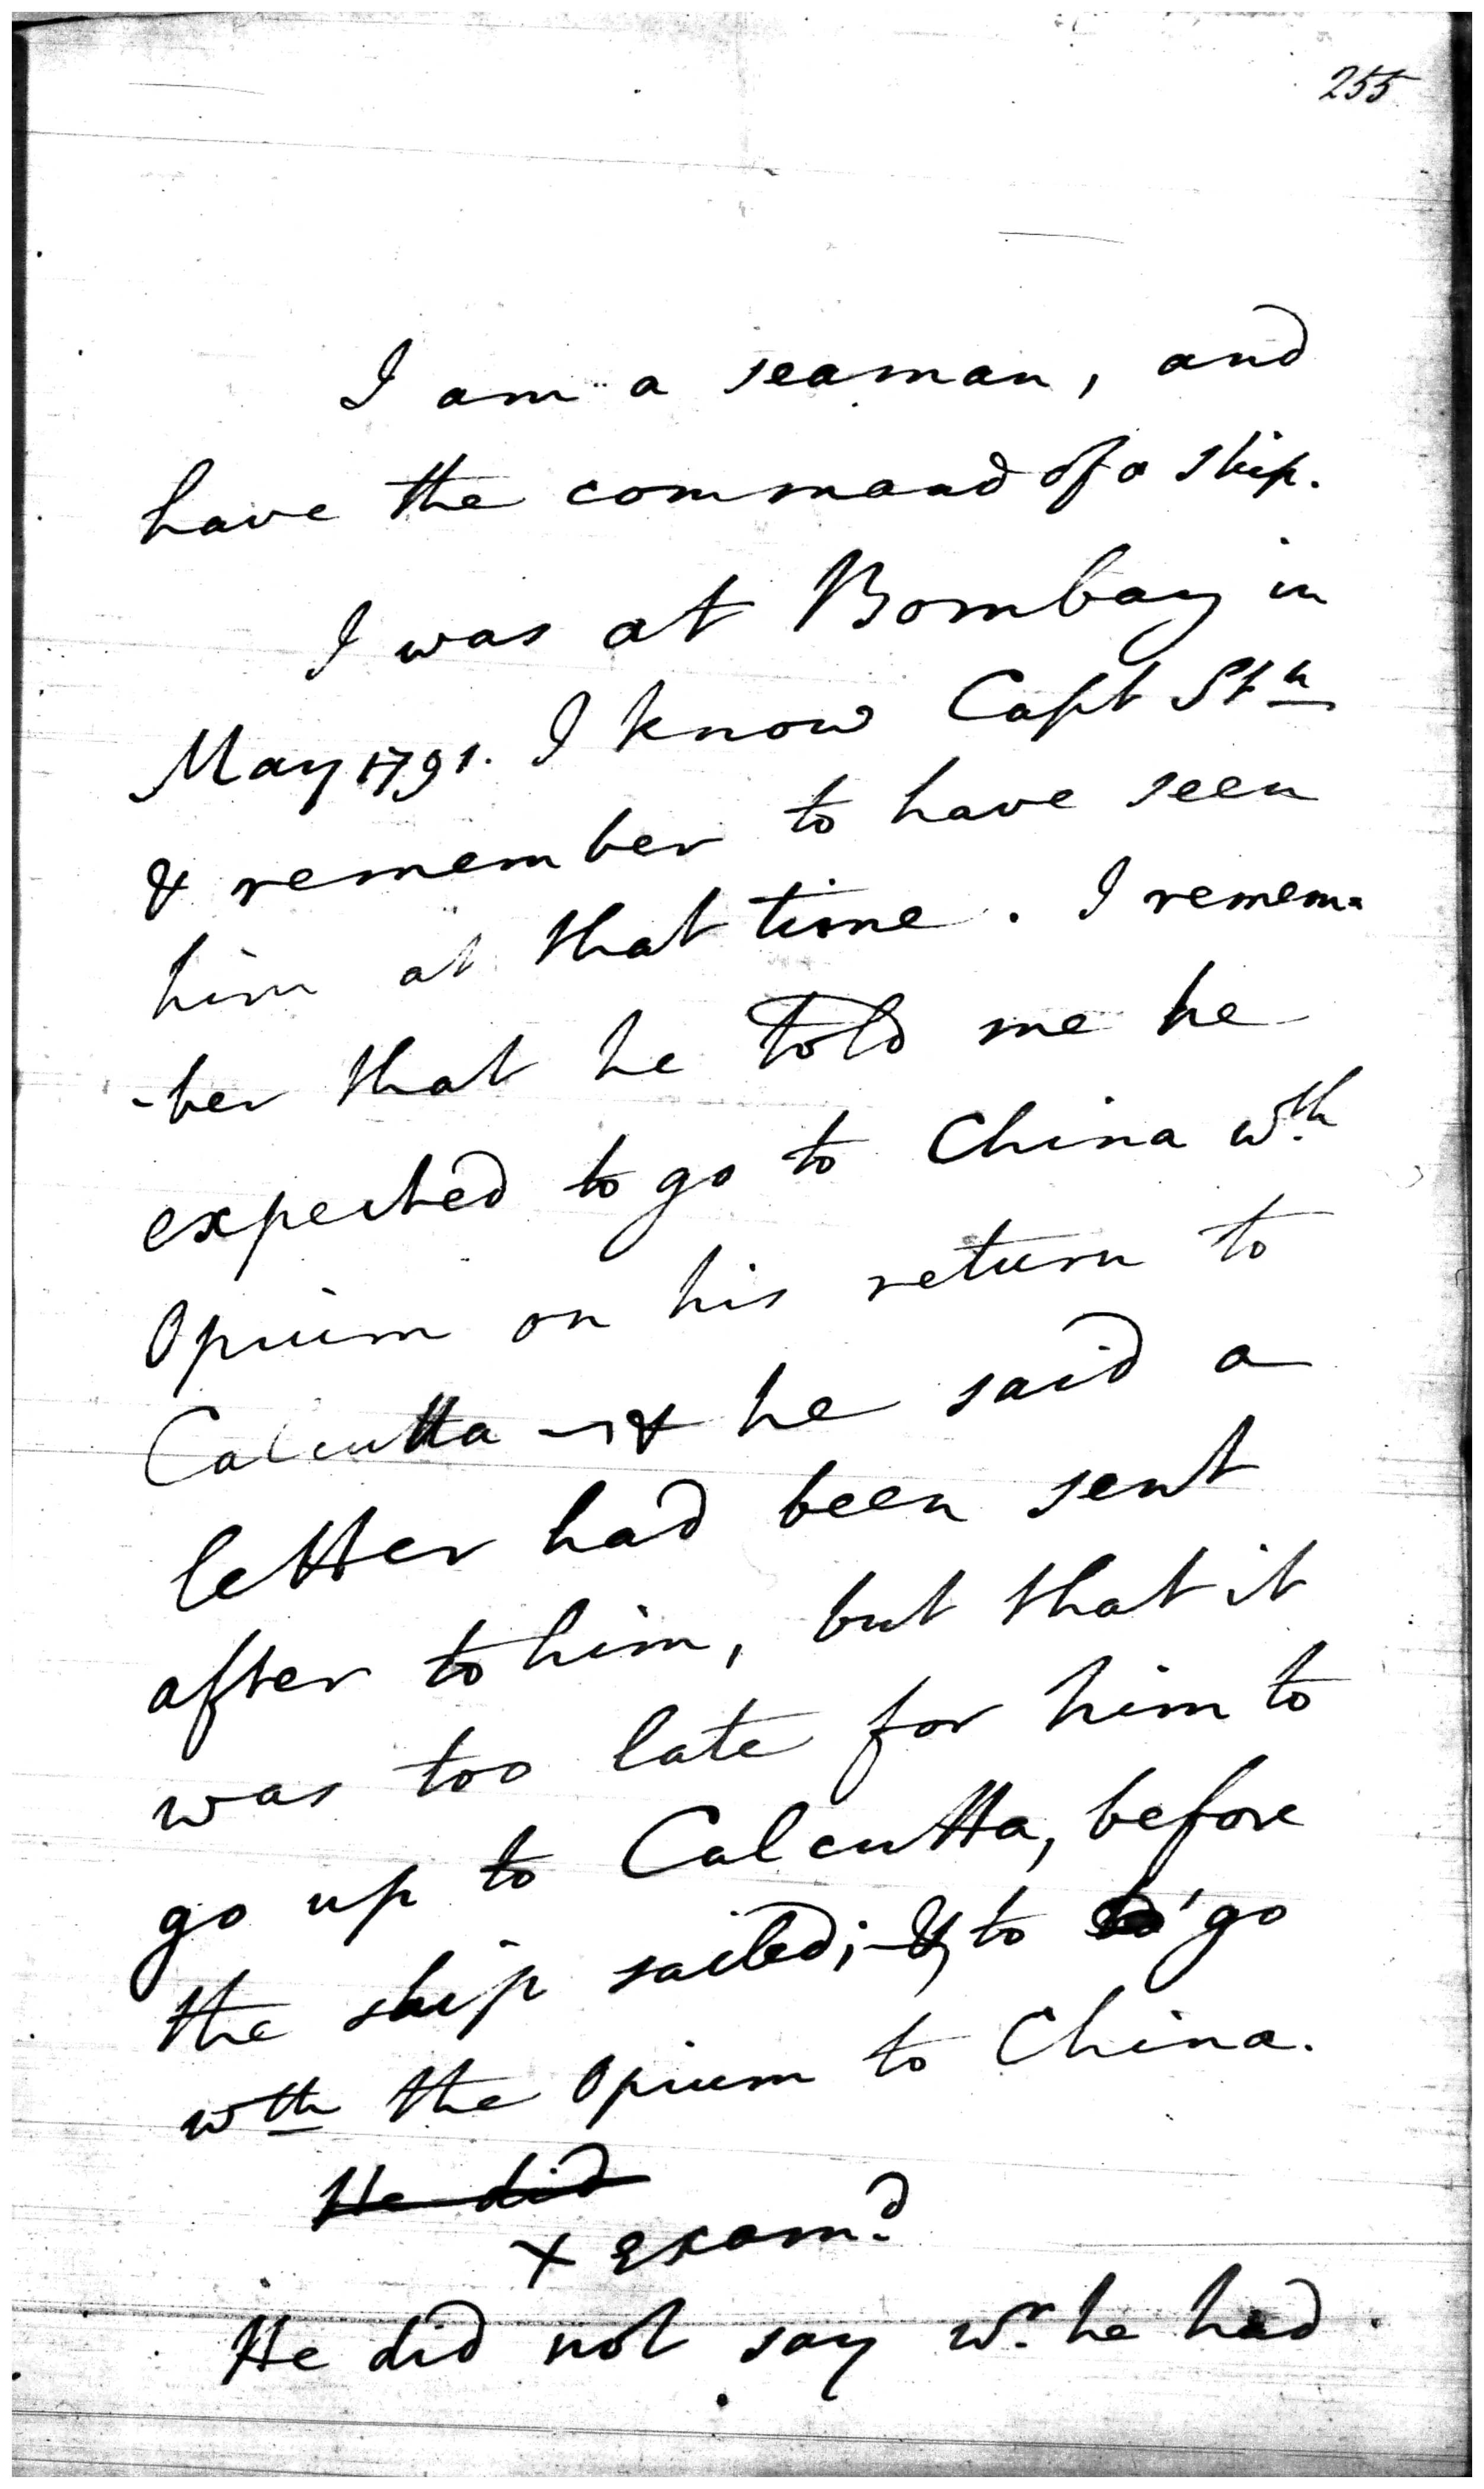 255
I am a seaman, and
have the command of a ship.
I was at Bombay in
May 1791. I know Capt Stn
& remember to have seen
him at that time. I remem=
-ber that he told me he
expected to go to China wth
Opium on his return to
Calcutta - & he said a
letter had been sent
after to him, but that it
was too late for him to
go up to Calcutta, before
the ship sailed; & to go
wth the Opium to China.
He did
X Examd
He did not say wr he had